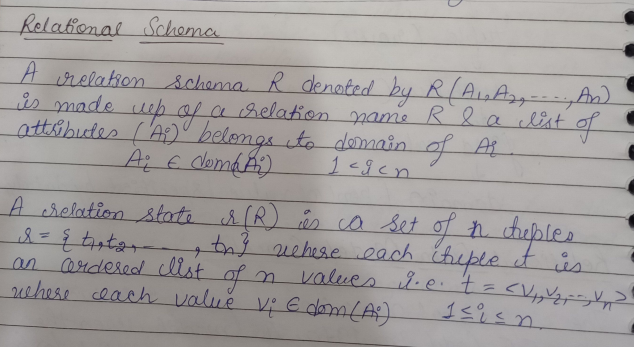 Relational Schema
A relation schema R denoted by R(A1, A2, ----, An)
is made up of a relation name R & a list of
attributes (Ai) belongs to domain of Ai.
Ai ∈ dom(Ai) 1<i<n
A relation state r(R) is a set of n tuples
r = {t1, t2, ----, tn} where each tuple t is
an ordered list of n values i.e. t = <v1, v2, --, vn>
where each value vi ∈ dom(Ai) 1≤i≤n.